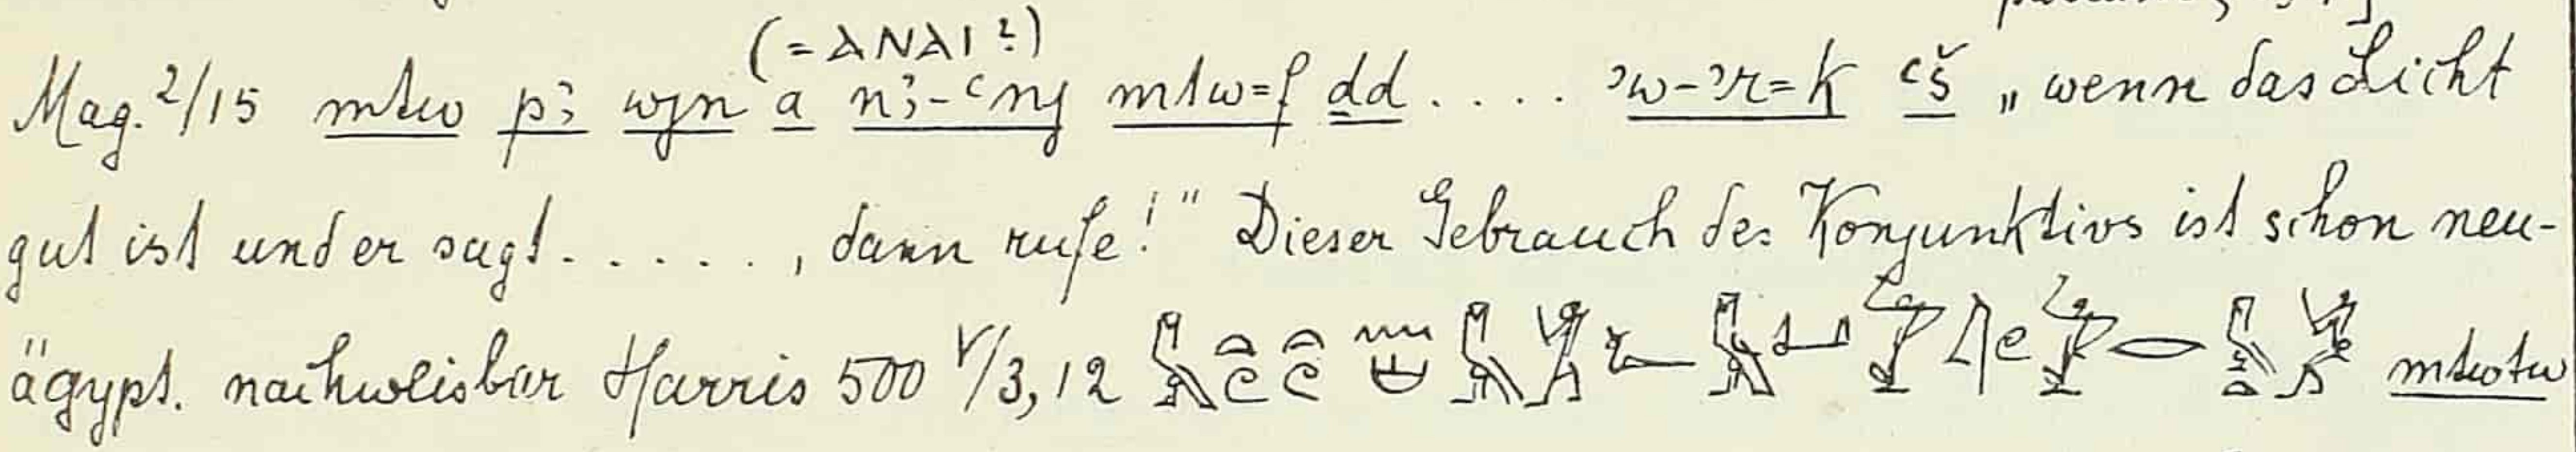 (= ⲁⲛⲁⲓ?)
Mag. 2/15 mtw pꜣ wjn a nꜣ-ꜥnj mtw=f dd . . . . ꜣw-ꜣr=k ꜥš „wenn das Licht
gut ist und er sagt . . . . . , dann rufe!" Dieser Gebrauch des Konjunktivs ist schon neu-
ägypt. nachweisbar Harris 500 V/3,12 mtwtw